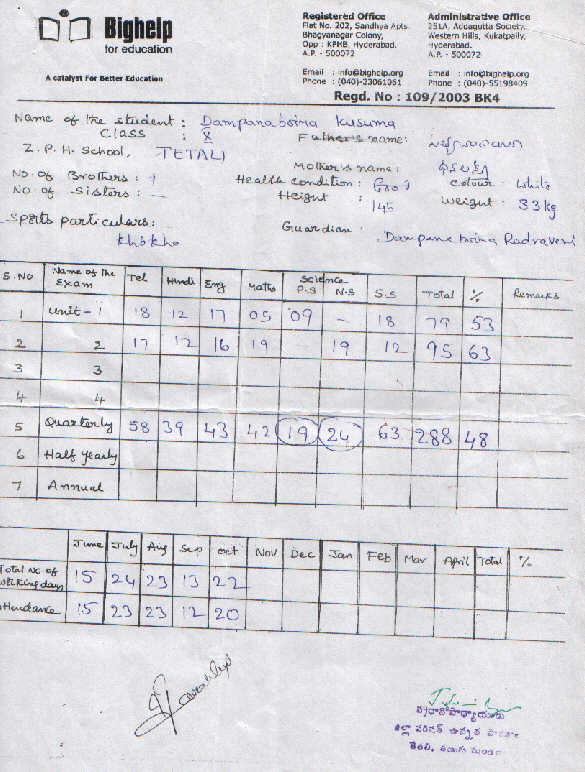 Bighelp
for education
A catalyst For Better Education
Registered Office
Flat No. 202, Sandhya Apts.
Bhagyanagar Colony,
Opp : KPHB, Hyderabad.
A.P. - 500072
Email : info@bighelp.org
Phone : (040)-23061061
Administrative Office
251A, Addagutta Society,
Western Hills, Kukatpally,
Hyderabad.
A.P. - 500072
Email : info@bighelp.org
Phone : (040)-55198409
Regd. No : 109/2003 BK4
Name of the student : Dampanaboina Kusuma
Class : X
Father's name:
Z.P.H. School, TETALI
Mother's name: ధనలక్ష్మి
No of Brothers : 1
Health condition : Good
colour : White
No of Sisters : —
Height : 145
weight : 33kg
Sports particulars :
Khokho
Guardian : Dampana boina
S.No Name of the Exam Tel Hindi Eng Maths Science P.S N.S S.S Total % Remarks
1 unit - 1 18 12 17 05 09 - 18 79 53
2 2 17 12 16 19 - 19 12 95 63
3 3
4 4
5 Quarterly 58 39 43 42 19 24 63 288 48
6 Half yearly
7 Annual
June July Aug Sep Oct Nov Dec Jan Feb Mar April Total %
Total No of Working days 15 24 23 13 22
Attendance 15 23 23 12 20
ప్రధానోపాధ్యాయుడు
జిల్లా పరిషత్ ఉన్నత పాఠశాల
తేతలి, తణుకు మండలం